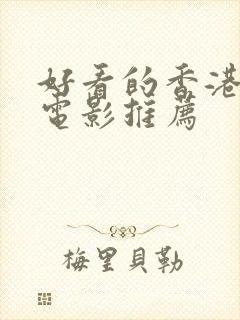 好看的香港
電影推薦
梅里貝勒